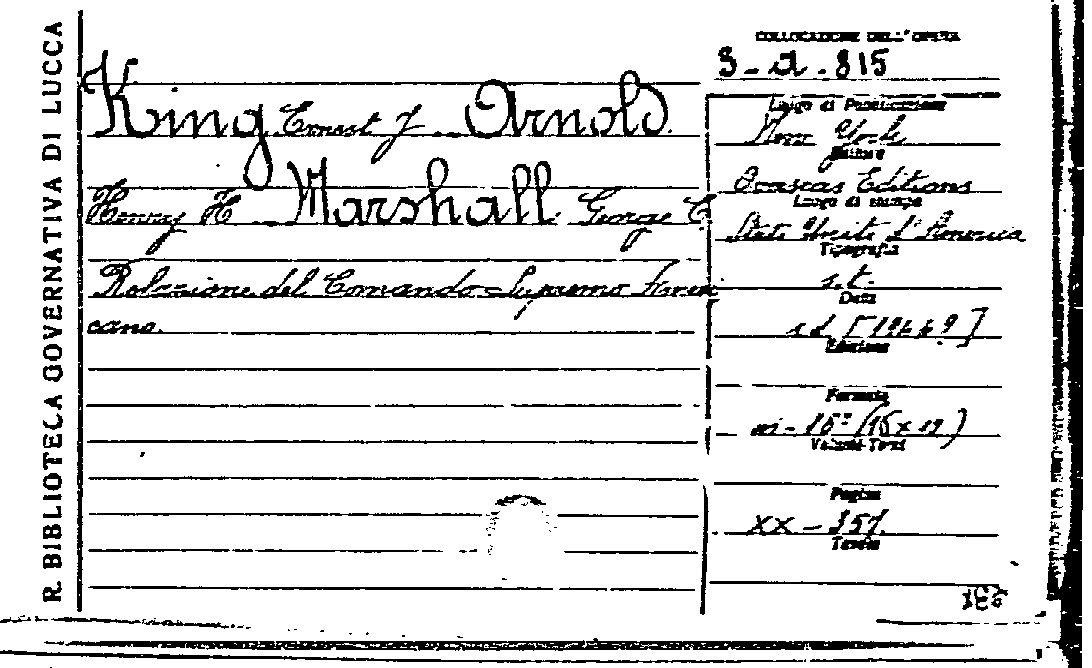 R. BIBLIOTECA GOVERNATIVA DI LUCCA
COLLOCAZIONE DELL'OPERA
3 - a - 815
King Ernest J. - Arnold
Henry H - Marshall George C.
Relazione del Comando Supremo Ameri
cano.
Luogo di Pubblicazione
New York
Editore
Overseas Editions
Luogo di stampa
Stati Uniti d'America
Tipografia
s.t.
Data
s.d. [194
Edizione
Formato
in-16° (16 x
Volumi-Tomi
Pagine
XX - 357.
Tavole